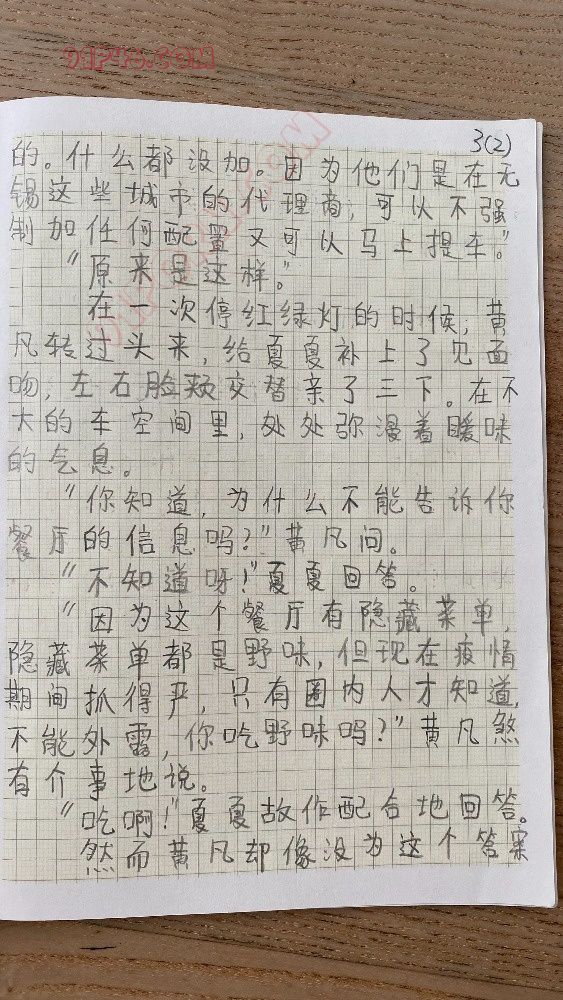 3(2)
的。什么都没加。因为他们是在无
锡这些城市的代理商，可以不强
制加任何配置又可以马上提车。”
“原来是这样。”
在一次停红绿灯的时候，黄
凡转过头来，给夏夏补上了见面
吻，左右脸颊交替亲了三下。在不
大的车空间里，处处弥漫着暖味
的气息。
“你知道，为什么不能告诉你
餐厅的信息吗？”黄凡问。
“不知道呀！”夏夏回答。
“因为这个餐厅有隐藏菜单，
隐藏菜单都是野味，但现在疫情
期间抓得严，只有圈内人才知道，
不能外露，你吃野味吗？”黄凡煞
有介事地说。
“吃啊！”夏夏故作配合地回答。
然而黄凡却像没为这个答案